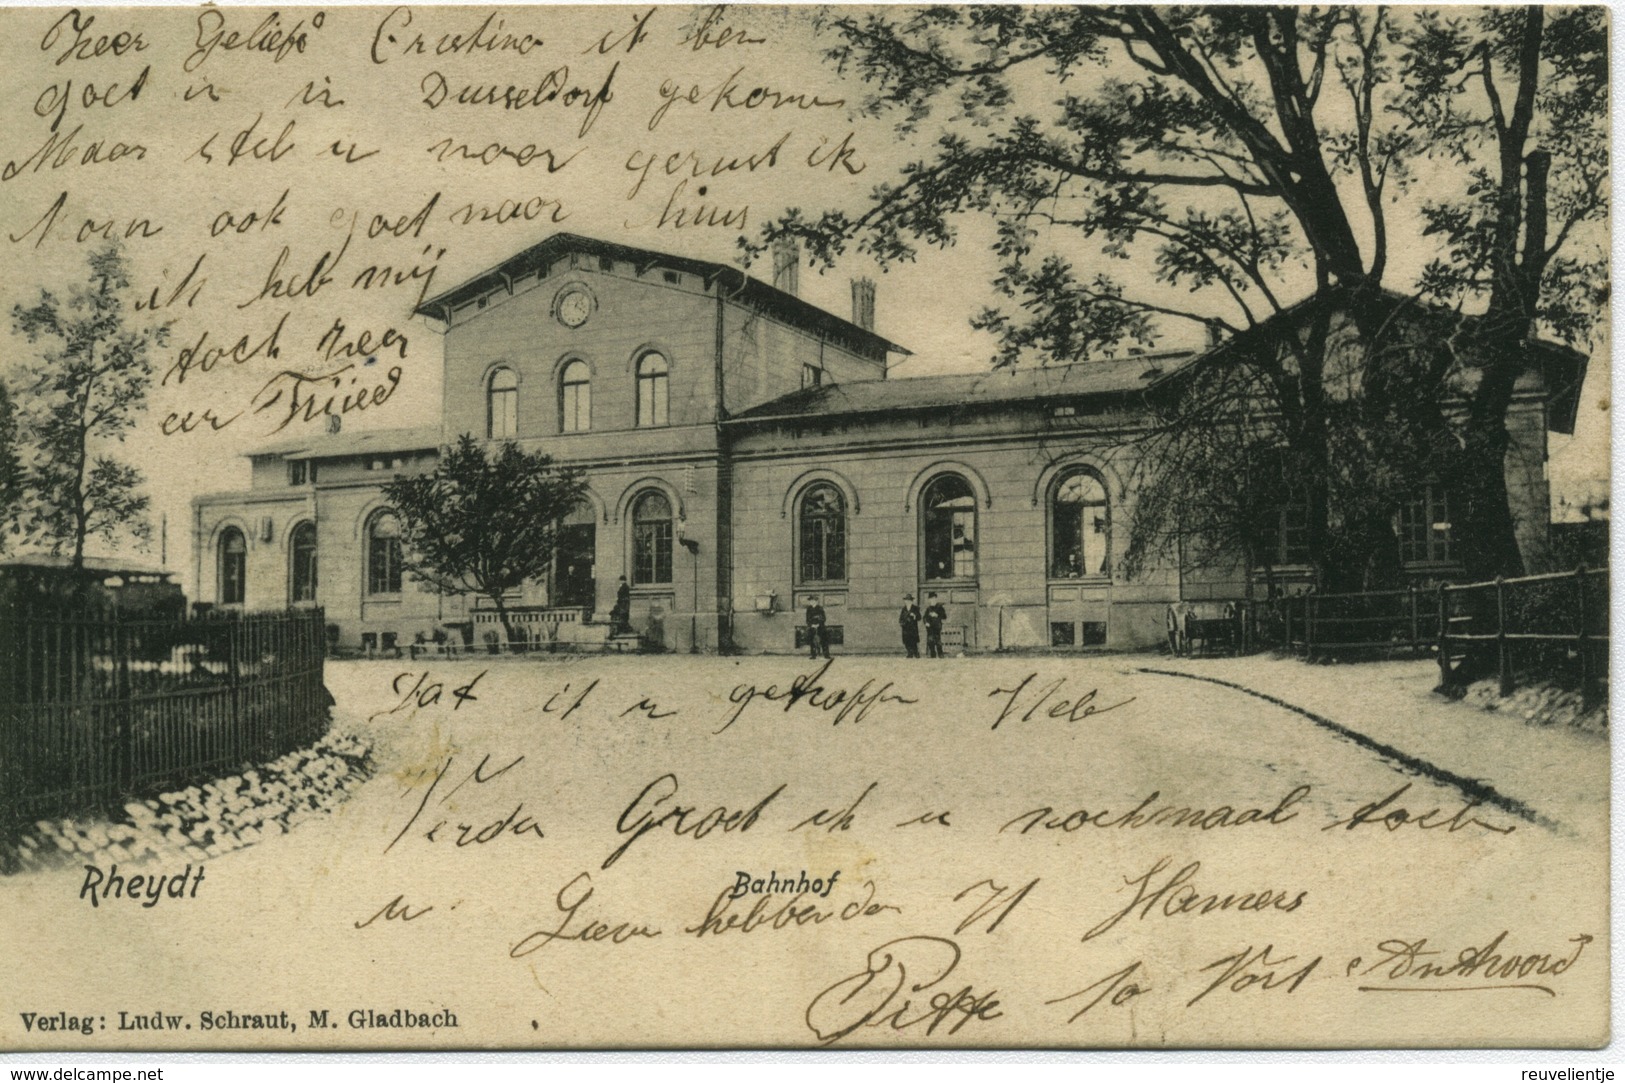 Zeer Geliefde Cristina ik ben
goet in Dusseldorf gekomen
Maar stel u maar gerust ik
kom ook goet naar huus
ik heb mij
toch zeer
er
Dat ik u getroffen Heb
Verder Groet ik u nochmaal toch
u Lieve hebbenden H Hamers
Bitte So Vort Antwoord
Rheydt
Bahnhof
Verlag: Ludw. Schraut, M. Gladbach
www.delcampe.net
reuvelientje